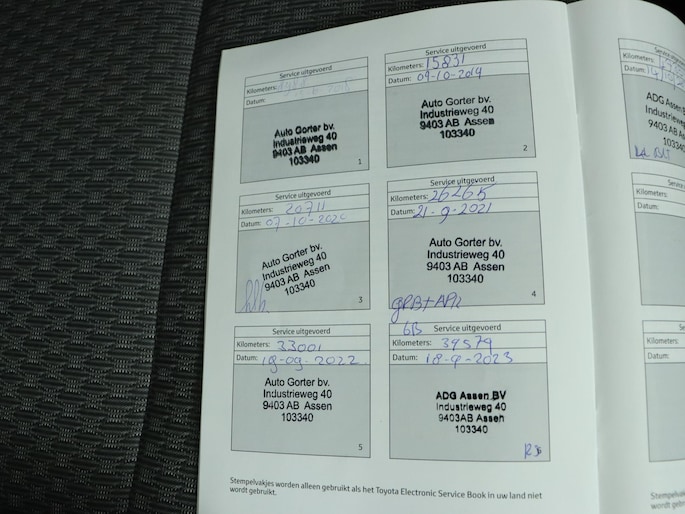 Service uitgevoerd
Kilometers:
Datum:
Auto Gorter bv.
Industrieweg 40
9403 AB Assen
103340
1
Service uitgevoerd
Kilometers: 15831
Datum: 09-10-2019
Auto Gorter bv.
Industrieweg 40
9403 AB Assen
103340
2
Service uitgevoerd
Kilometers: 20711
Datum: 07-10-2020
Auto Gorter bv.
Industrieweg 40
9403 AB Assen
103340
3
Service uitgevoerd
Kilometers: 26265
Datum: 21-9-2021
Auto Gorter bv.
Industrieweg 40
9403 AB Assen
103340
4
Service uitgevoerd
Kilometers: 33001
Datum: 18-09-2022
Auto Gorter bv.
Industrieweg 40
9403 AB Assen
103340
5
6B Service uitgevoerd
Kilometers: 39579
Datum: 18-9-2023
ADG Assen BV
Industrieweg 40
9403AB Assen
103340
Stempelvakjes worden alleen gebruikt als het Toyota Electronic Service Book in uw land niet
wordt gebruikt.
Kilometers:
Datum:
ADG Assen
Industrieweg
9403 AB Ass
Kilometers:
Datum:
Kilometers:
Datum:
Stempelvakj
wordt gebrui